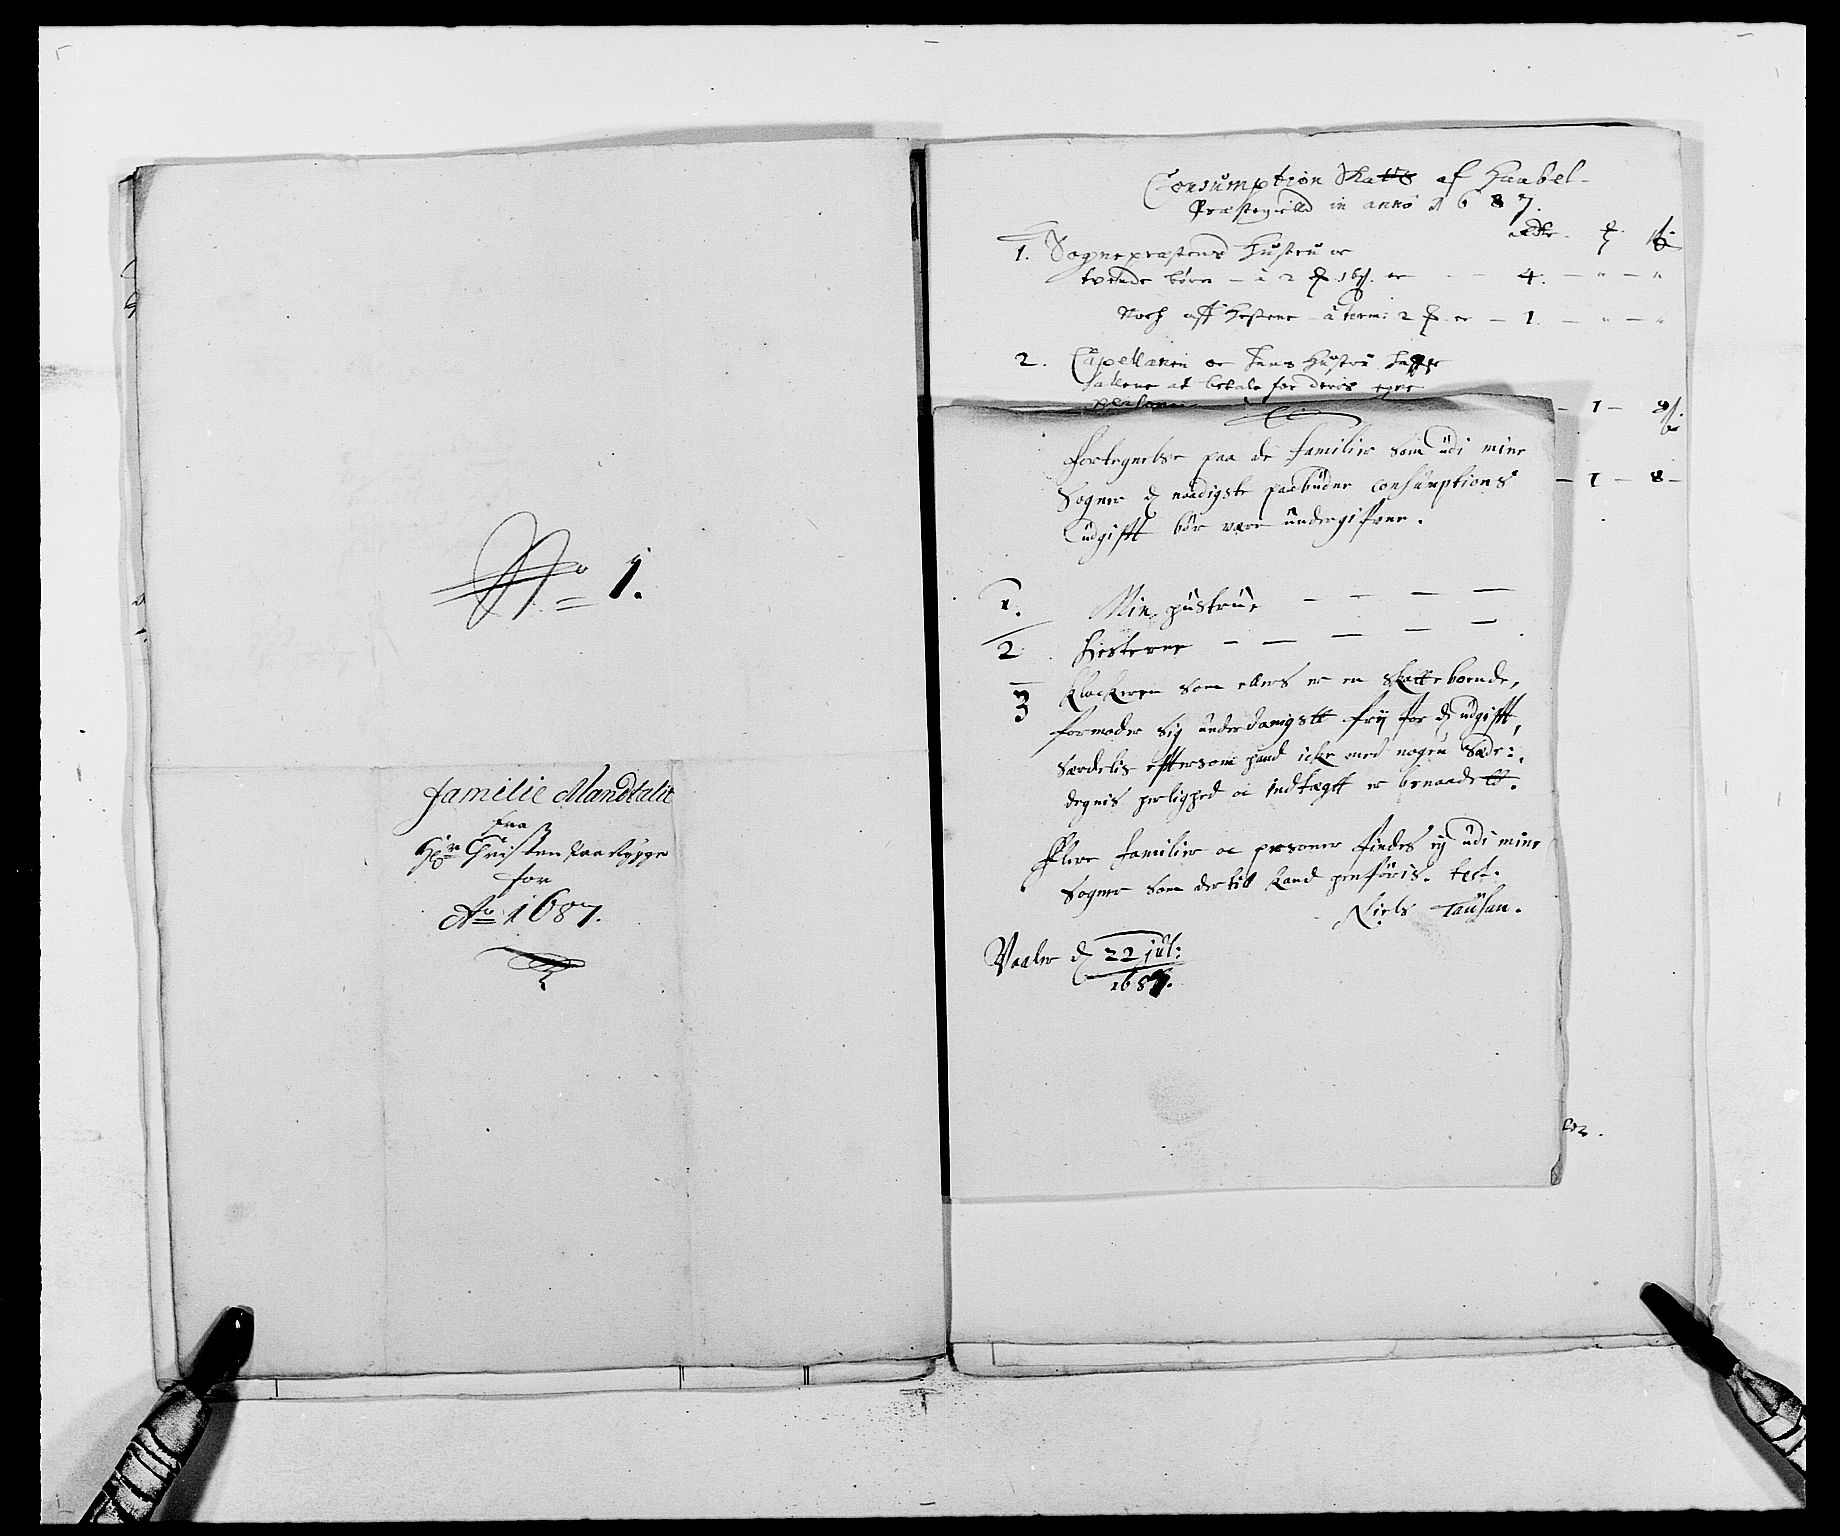 No 1.
Familie Mandtalit
fra
Hr Christen paa Rygge
for
Ao 1687.
Consumption Skatt af Haabel-
Præstegield in anno 1687.
1. Sognepræstens Hustru oc
tvende börn - à 2 16 er - - 4. - " - "
Noch aff hestene - à term: 2 er - 1. - " - "
2. Capellanen oc hans Hustru
at betale for deris egne
- 1 - 8
Fortegnelse paa de familier som udi mine
Sogner d naadigste paabudne Consumptions
udgifft bör være undergifven.
- 1 - 8 -
1. Min hustrue - - - -
2. Hesterne - - - - -
3 Klockeren som ellers er en skattebonde,
formoder sig underdanigst frij for d udgifft,
særdelis efftersom hand icke med nogen Sæde:
degnis herlighed oc indtægt er benaadett.
Flere familier oc personer findes ej udi mine
Sogner som dertil kand henföris. test.
Niels Tausan.
Vaaler d 22 jul:
1687.